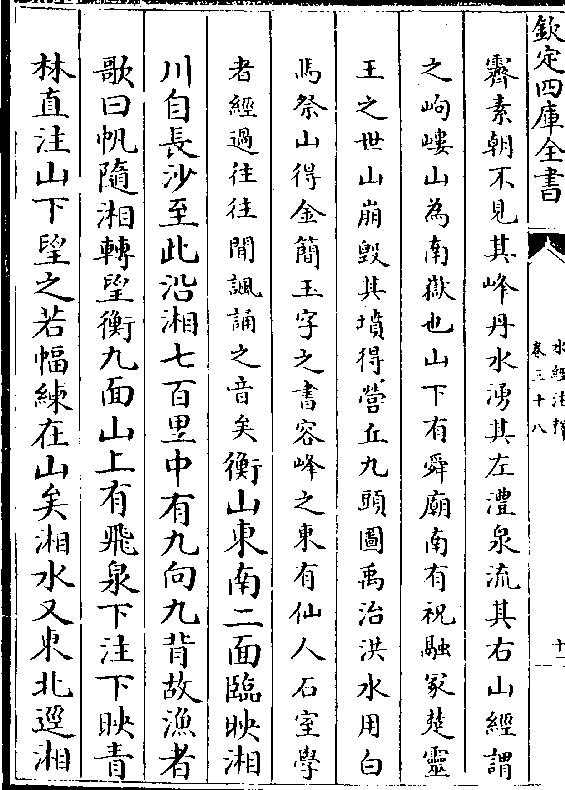 欽定四庫全書
水經注釋
卷三十八
十一
霽素朝不見其峰丹水湧其左澧泉流其右山經謂
之岣嶁山為南嶽也山下有舜廟南有祝融冢楚靈
王之世山崩毀其墳得營丘九頭圖禹治洪水用白
馬祭山得金簡玉字之書容峰之東有仙人石室學
者經過往往聞諷誦之音矣衡山東南二面臨映湘
川自長沙至此沿湘七百里中有九向九背故漁者
歌曰帆隨湘轉望衡九面山上有飛泉下注下映青
林直注山下望之若幅練在山矣湘水又東北逕湘